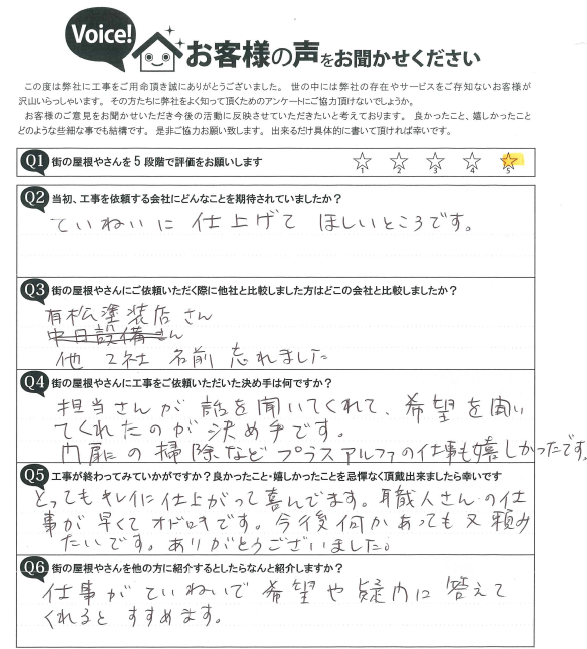 Voice!
お客様の声をお聞かせください
この度は弊社に工事をご用命頂き誠にありがとうございました。 世の中には弊社の存在やサービスをご存知ないお客様が
沢山いらっしゃいます。 その方たちに弊社をよく知って頂くためのアンケートにご協力頂けないでしょうか。
お客様のご意見をお聞かせいただき今後の活動に反映させていただきたいと考えております。 良かったこと、嬉しかったこと
どのような些細な事でも結構です。 是非ご協力お願い致します。 出来るだけ具体的に書いて頂ければ幸いです。
Q1 街の屋根やさんを5段階で評価をお願いします
1 2 3 4 5
Q2 当初、工事を依頼する会社にどんなことを期待されていましたか?
ていねいに 仕上げて ほしいところです。
Q3 街の屋根やさんにご依頼いただく際に他社と比較しました方はどこの会社と比較しましたか?
有松塗装店さん
中日設備さん
他 2社 名前 忘れました
Q4 街の屋根やさんに工事をご依頼いただいた決め手は何ですか?
担当さんが 話を聞いてくれて、希望を聞い
てくれたのが決め手です。
門扉の掃除などプラスアルファの仕事も嬉しかったです。
Q5 工事が終わってみていかがですか?良かったこと・嬉しかったことを忌憚なく頂戴出来ましたら幸いです
とってもキレイに仕上がって喜んでます。職人さんの仕
事が早くてオドロキです。今後何かあっても又頼み
たいです。ありがとうございました。
Q6 街の屋根やさんを他の方に紹介するとしたらなんと紹介しますか?
仕事がていねいで希望や疑問に答えて
くれるとすすめます。